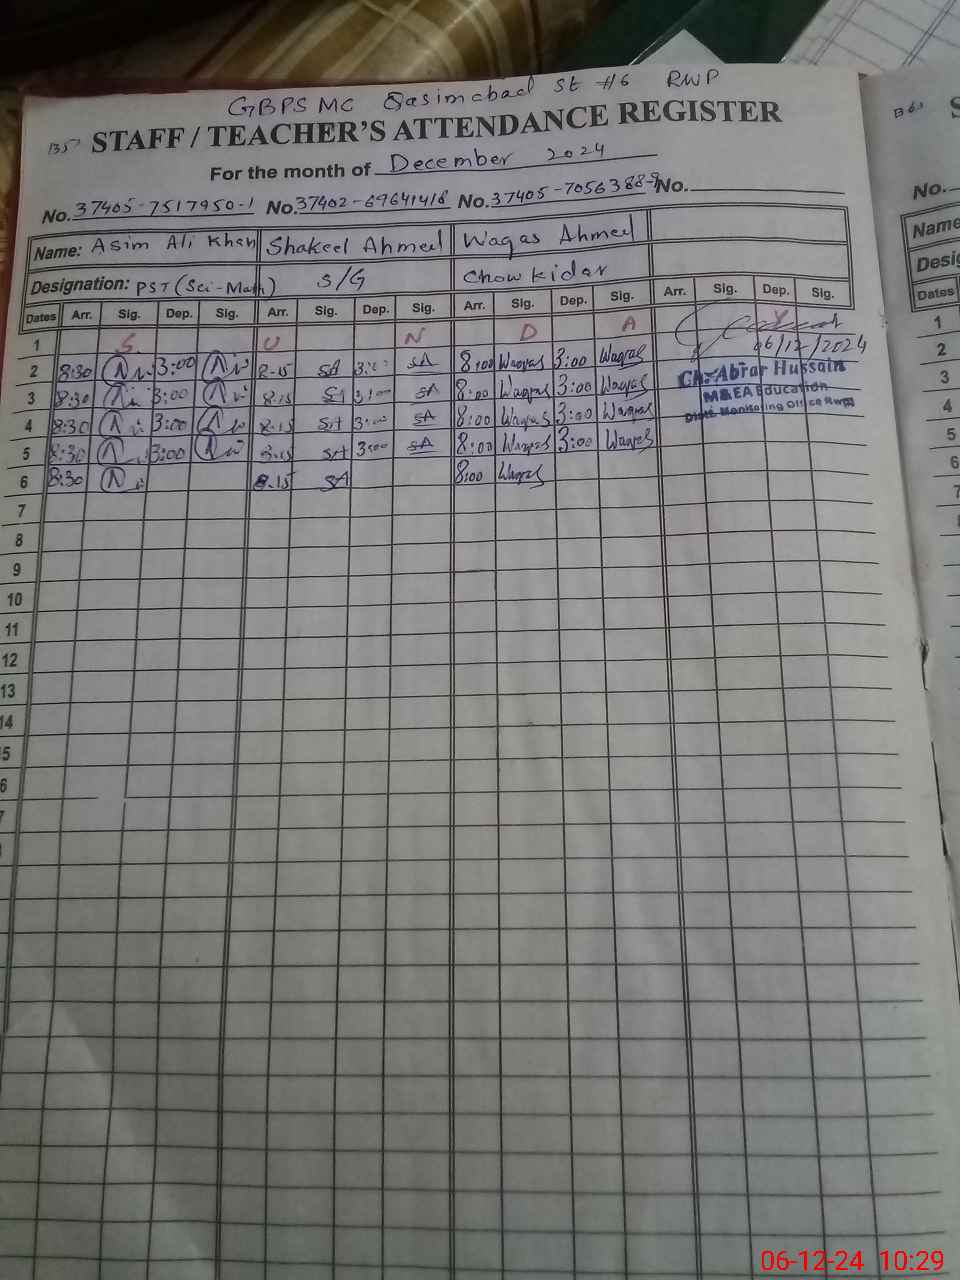 GBPS MC Qasimabad St #6 RWP
STAFF / TEACHER'S ATTENDANCE REGISTER
For the month of December 2024
No. 37405-7517950-1 No. 37402-6964141-8 No. 37405-7056388-9 No.
Name: Asim Ali Khan Shakeel Ahmed Waqas Ahmed
Designation: PST (Sci-Math) S/G Chowkidar
Dates Arr. Sig. Dep. Sig. Arr. Sig. Dep. Sig. Arr. Sig. Dep. Sig. Arr. Sig. Dep. Sig.
1 S U N D A Y
06/12/2024
2 8:30 3:00 8-15 SA 3:00 SA 8:00 Waqas 3:00 Waqas
Ch. Abrar Hussain
3 8:30 3:00 8-15 SA 3:00 SA 8:00 Waqas 3:00 Waqas
M&EA Education
4 8:30 3:00 8-15 SA 3:00 SA 8:00 Waqas 3:00 Waqas
Distt. Monitoring Office Rwp
5 8:30 3:00 8-15 SA 3:00 SA 8:00 Waqas 3:00 Waqas
6 8:30 8-15 SA 8:00 Waqas
7
8
9
10
11
12
13
14
5
6
7
No.
Name
Desig
Dates
1
2
3
4
5
6
7
8
9
1
06-12-24 10:29